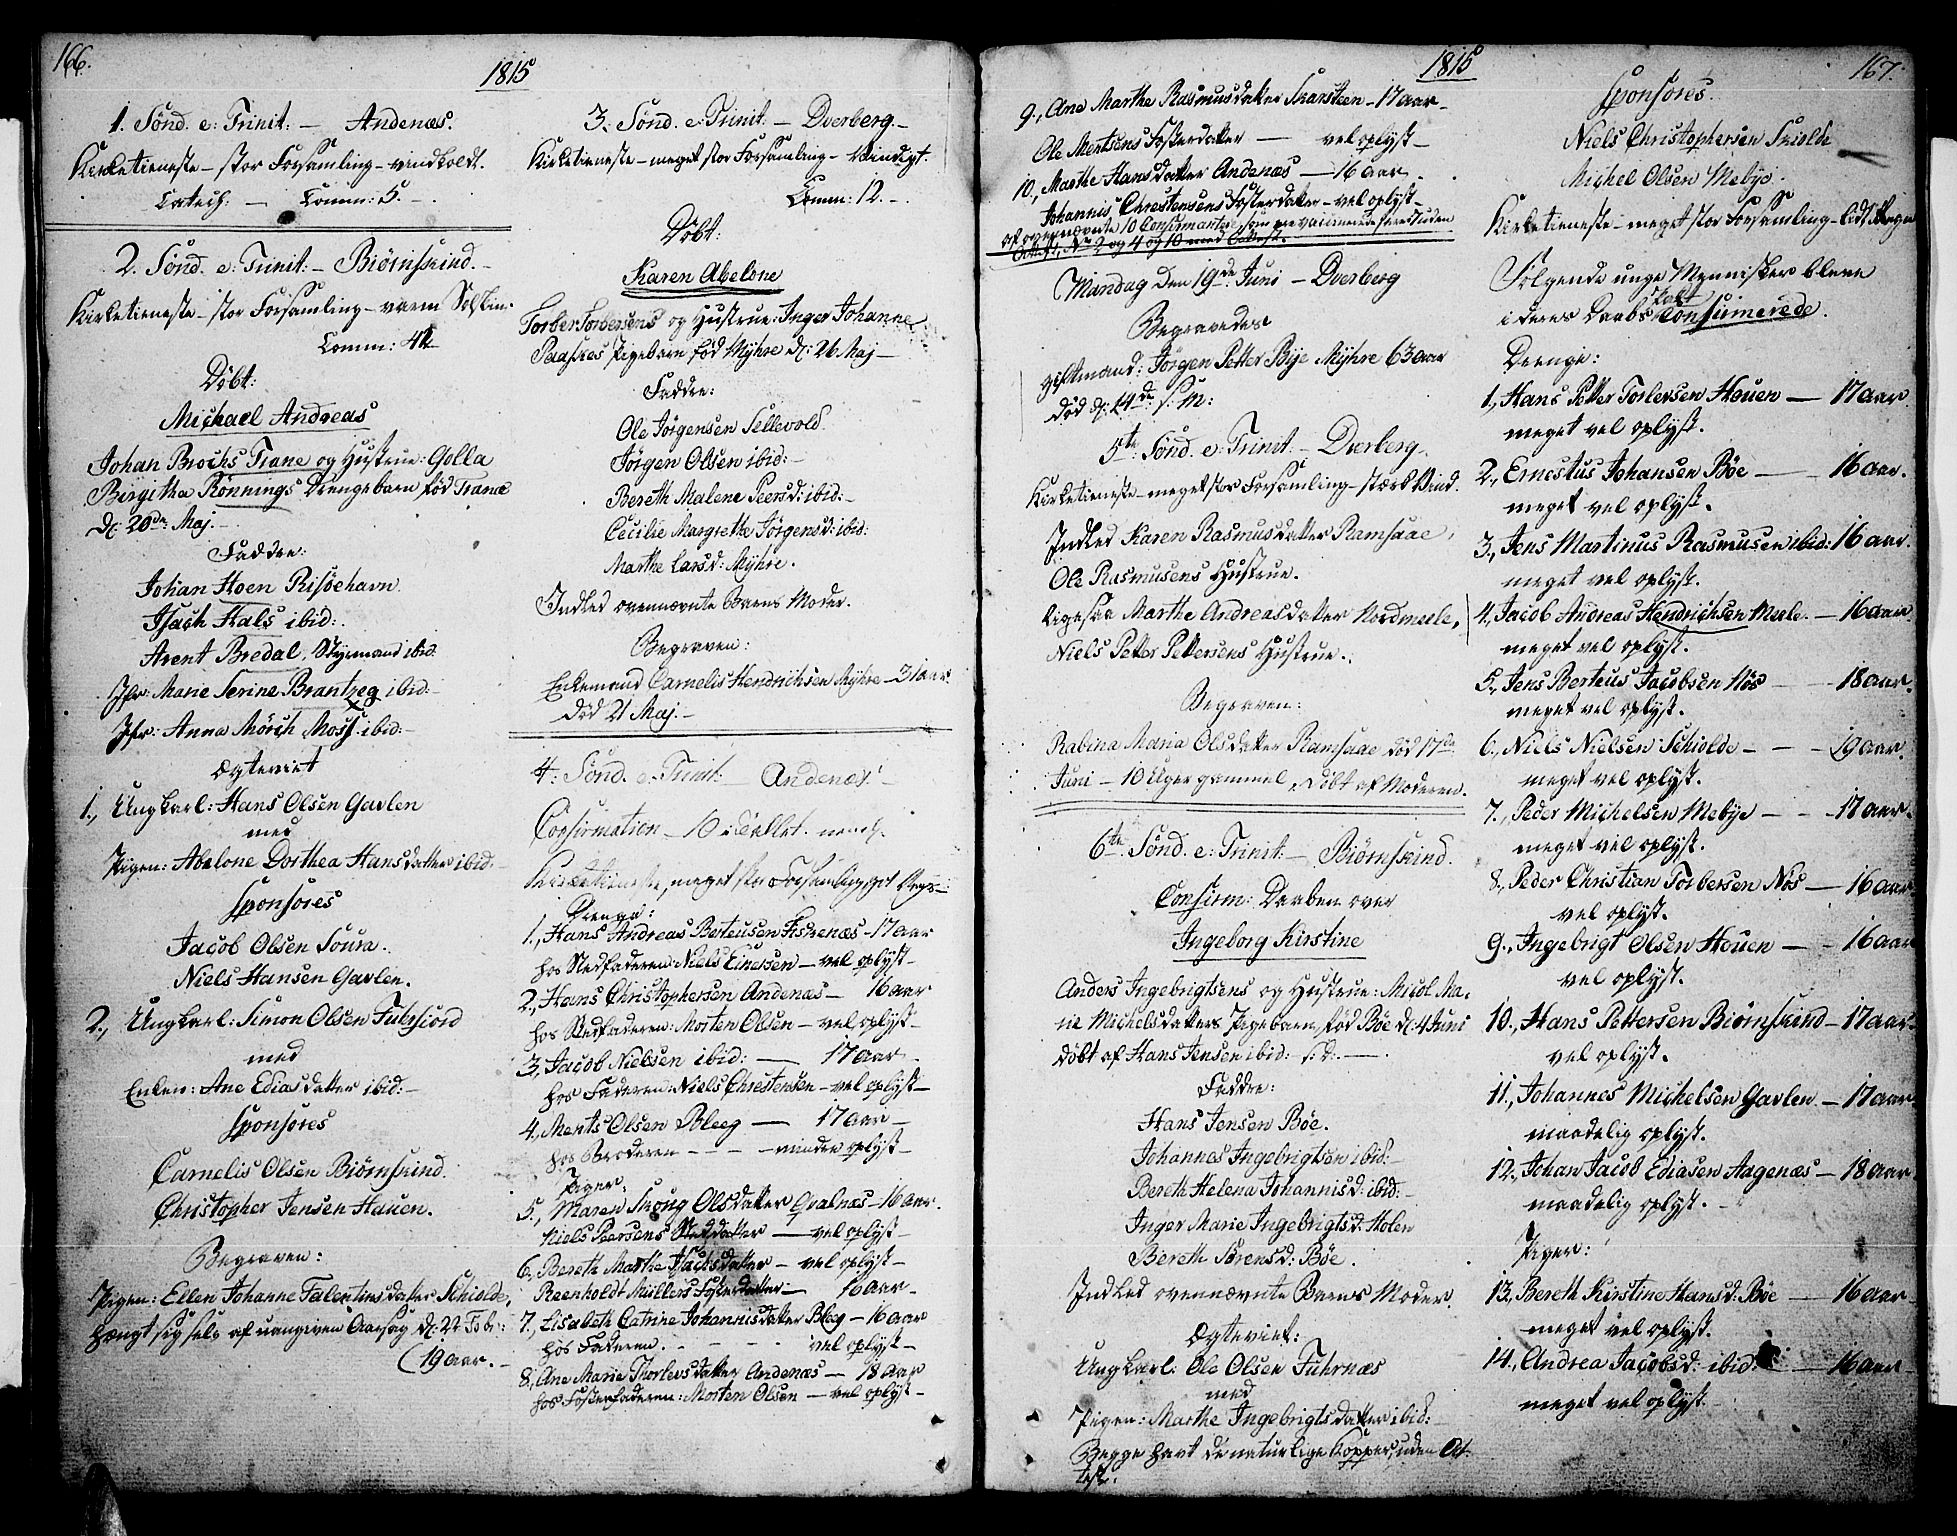 166.
1815
1. Sønd. e: Trinit: — Andenæs.
Kirketieneste – stor Forsamling – vindkoldt.
Catech: — Comm: 5. –
2. Sønd. e: Trinit: – Biørnskind. –
Kirketieneste – stor Forsamling – varm Solskin.
Comm: 42
Døbt:
Michael Andreas
Johan Brochs Trane og Hustrue: Golla
Birgitha Rønnings Drengebarn fød Tranæ
d: 20de Maj. –
Faddre:
Johan Hoen Risøehavn.
Isach Hals ibid:.
Arent Bredal, Styrmand ibid.
Jfr: Marie Serine Brantzeg ibid: –
Jfr: Anna Mørch Moss. ibid: –
Ægteviet
1., Ungkarl: Hans Olsen Gavlen
med
Pigen: Abelone Dorthea Hansdatter ibid. –
Sponsores
Jacob Olsen Soura.
Niels Hansen Gavlen.
2., Ungkarl: Simon Olsen Fuhsfiord
med
Enken: Ane Ediasdatter ibid: –
Sponsores
Cornelis Olsen Biørnskind.
Christopher Jensen Hauen.
Begraven:
Pigen: Ellen Johanne Falentinsdatter Schiolde,
hængt sig selv af uangiven Aarsag d: 22 Febr:
(19 aar. –
3. Sønd. e: Trinit: – Dverberg. –
Kirketieneste – meget stor Forsamling – Vindigt.
Comm: 12. –
Døbt:
Karen Abelone
Torber Torbersens og Hustrue: Inger Johanne
Paaskes Pigebarn fød Myhre d: 26 Maj –
Faddre:
Ole Jørgensen Sellevold.
Jørgen Olsen ibid: –
Bereth Malene Peersd: ibid: –
Cecilie Margrethe Jørgensd: ibid:
Marthe Larsd: Myhre.
Indled ovennævnte Barns Moder.
Begraven:
Enkemand Carnelis Hendrichsen Myhre – 31 aar.
død 21 Maj. –
4: Sønd. e. Trinit: Andenæs
Confirmation – 10
Kirketieneste, meget stor Forsamling
Drenge:
1., Hans Andreas Berteusen Fiskenæs – 17 aar
hos Stedfaderen: Niels Einersen – vel oplyst –
2., Hans Christophersen Andenæs – 16 aar
hos Stedfaderen: Morten Olsen – vel oplyst –
3., Jacob Nielsen ibid: — 17 aar –
hos Faderen: Niels Chrestensen – vel oplyst –
4., Ments Olsen Bleeg — 17 aar –
hos Broderen – – – – minder oplyst –
Piger:
5., Maren Snong Olsdatter Qvalnæs – 16 aar.
Niels Peersens Steddatter — vel oplyst –
6., Bereth Marthe Isachsdatter – vel oplyst –
Reenholdt Müllers Fosterdatter – 16 aar –
7., Lisabeth Catrine Johannisdatter Bleeg – 16 aar
hos Faderen. – – – vel oplyst –
8., Ane Marie Thorlevsdatter Andenæs – 18 aar
hos Fosterfaderen: Morten Olsen – vel oplyst –
1815
167.
9., Ane Marthe Rasmusdatter Skarsteen – 17 aar –
Ole Mentsens Fosterdatter — vel oplyst –
10., Marthe Hansdatter Andenæs — 16 aar.
Johannis Chrestensens Fosterdatter – vel oplyst –
af ovennævnte 10 Confirmanter, som ere vaccinerede findes uden
Attest, No 2 og 4 og 10 med Attest.
Mandag den 19de Juni – Dverberg
Begravedes
giftmand: Jørgen Petter Bye Myhre 63 aar
død d: 14de s: M:
5te Sønd. e: Trinit: – Dverberg.
Kirketieneste – meget stor Forsamling – stærk Vind.
Indled Karen Rasmusdatter Ramsaae,
Ole Rasmusens Hustrue.
ligesaa Marthe Andreasdatter Nordmeele,
Niels Petter Pettersens Hustrue.
Begraven:
Rabina Maria Olsdatter Ramsaae død 17de
Juni – 10 Uger gammel, døbt af Moderen.
6te Sønd. e: Trinit – Biørnskind.
Confirm: Daaben over
Ingeborg Kirstine
Anders Ingebrigtsens og Hustrue: Micol Ma-
rie Michelsdatters Pigebarn, fød Bøe d: 4 Juni
døbt af Hans Jensen ibid: s: D: —
Faddre:
Hans Jensen Bøe.
Johannes Ingebrigtsen ibid: –
Bereth Helena Johannisd: ibid: –
Inger Marie Ingebrigtsd: Holen
Bereth Sørensd: Bøe.
Indled ovennævnte Barns Moder.
Ægteviet:
Ungkarl: Ole Olsen Fuhrnæs
med
Pigen: Marthe Ingebrigtsdatter ibid: –
Begge havt de naturlige Kopper, uden At-
test.
Sponsores.
Niels Christophersen Skiolde
Michel Olsen Mebye.
Kirketieneste – meget stor Forsamling – lidt Regn
Følgende unge Mennisker bleve
i deres Daabs Pakt Confirmerede.
Drenge:
1., Hans Petter Torlevsen Houen — 17 aar.
meget vel oplyst.
2., Ernestus Johansen Bøe — 16 aar.
meget vel oplyst.
3., Jens Martinus Rasmusen ibid: 16 aar.
meget vel oplyst.
4., Jacob Andreas Hendrichsen Meele. — 16 aar.
meget vel oplyst.
5., Jens Berteus Jacobsen Nøs — 18 aar.
meget vel oplyst.
6., Niels Nielsen Schiolde – – – 19 aar.
meget vel oplyst.
7., Peder Michelsen Mebye – – – 17 aar.
meget vel oplyst.
8., Peder Christian Torbersen Nøs — 16 aar
vel oplyst.
9., Ingebrigt Olsen Houen — – 16 aar
vel oplyst.
10., Hans Pettersen Biørnskind – 17 aar.
vel oplyst.
11., Johannes Michelsen Gavlen – 17 aar.
maadelig oplyst.
12., Johan Jacob Ediasen Aagenæs – 18 aar.
maadelig oplyst. –
Piger:
13., Bereth Kirstine Hansd: Bøe — 16 aar
meget vel oplyst.
14., Andrea Jacobsd: ibid: — 16 aar
meget vel oplyst.